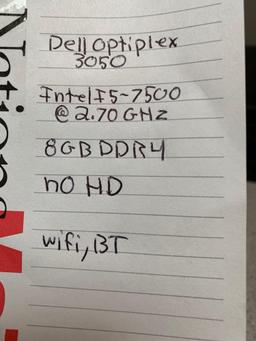 Dell Optiplex
3050
Intel I5-7500
@ 2.70 GHz
8GB DDR4
no HD
wifi, BT